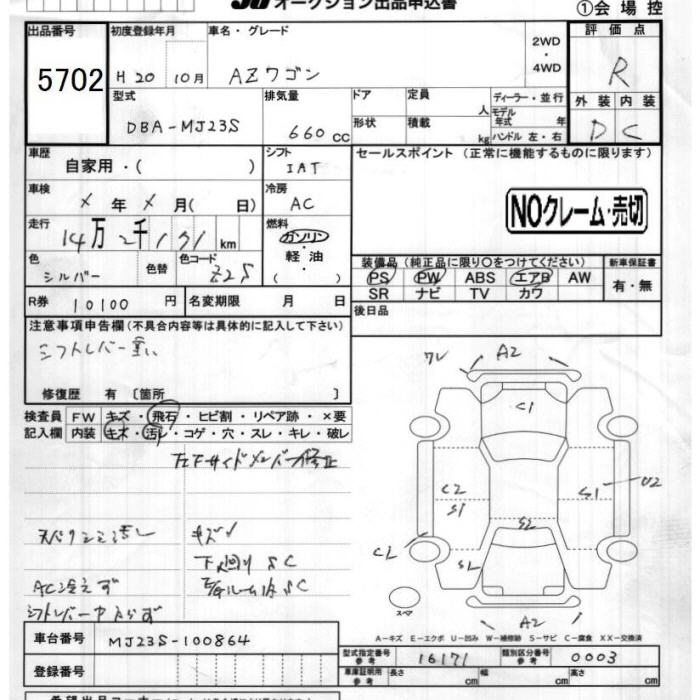 オークション出品申込書
①会場控
出品番号 初度登録年月 車名・グレード 評価点
5702 H20 10月 AZワゴン 2WD・4WD R
型式 排気量 ドア 定員 人 ディーラー・並行 外装 内装
DBA-MJ23S 660cc 形状 積載 kg モデル年式 年 ハンドル 左・右 D C
車歴 シフト セールスポイント (正常に機能するものに限ります)
自家用・( ) IAT
車検 冷房
× 年 × 月( 日) AC
NOクレーム・売切
走行 燃料
14万2千131km ガソリン・軽油 ( )
色 色替 色コード
シルバー Z2S
装備品 (純正品に限り○をつけてください) 新車保証書
PS PW ABS エアB AW 有・無
SR ナビ TV カワ
R券 10100円 名変期限 月 日
後日品
注意事項申告欄(不具合内容等は具体的に記入して下さい)
シフトレバー重い
修復歴 有 〔箇所 〕
検査員 FW キズ・飛石・ヒビ割・リペア跡・×要
記入欄 内装 キズ・汚レ・コゲ・穴・スレ・キレ・破レ
左Fサイドメンバー修正
キズ
下回りSC
AC冷えず
シフトレバー入らず
ワレ A2
C1
C2 S1 S1 U2
S2
A2
スペア
A-キズ E-エクボ U-凹み W-補修跡 S-サビ C-腐食 XX-交換済
車台番号 MJ23S-100864
型式指定番号 参考 16171 類別区分番号 参考 0003
登録番号
車庫証明用 参考 長さ cm 幅 cm 高さ cm